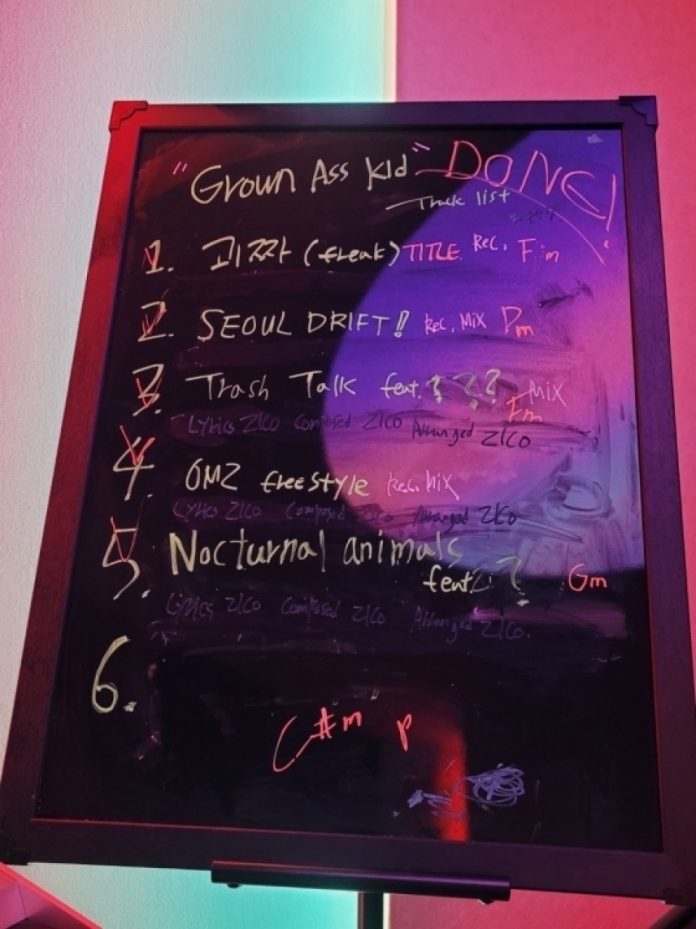 "Grown Ass kid" DONE!
Track list
1. 괴짜 (freak) TITLE Rec, Fm
2. SEOUL DRIFT! Rec, Mix Dm
3. Trash Talk feat. ? ? ? Mix
Fm
Lyrics ZICO Composed ZICO Arranged ZICO
4. OMZ freestyle Rec. Mix
Lyrics ZICO Composed ZICO Arranged ZICO
5. Nocturnal animals
feat. ? Gm
Lyrics ZICO Composed ZICO Arranged ZICO.
6.
C#m